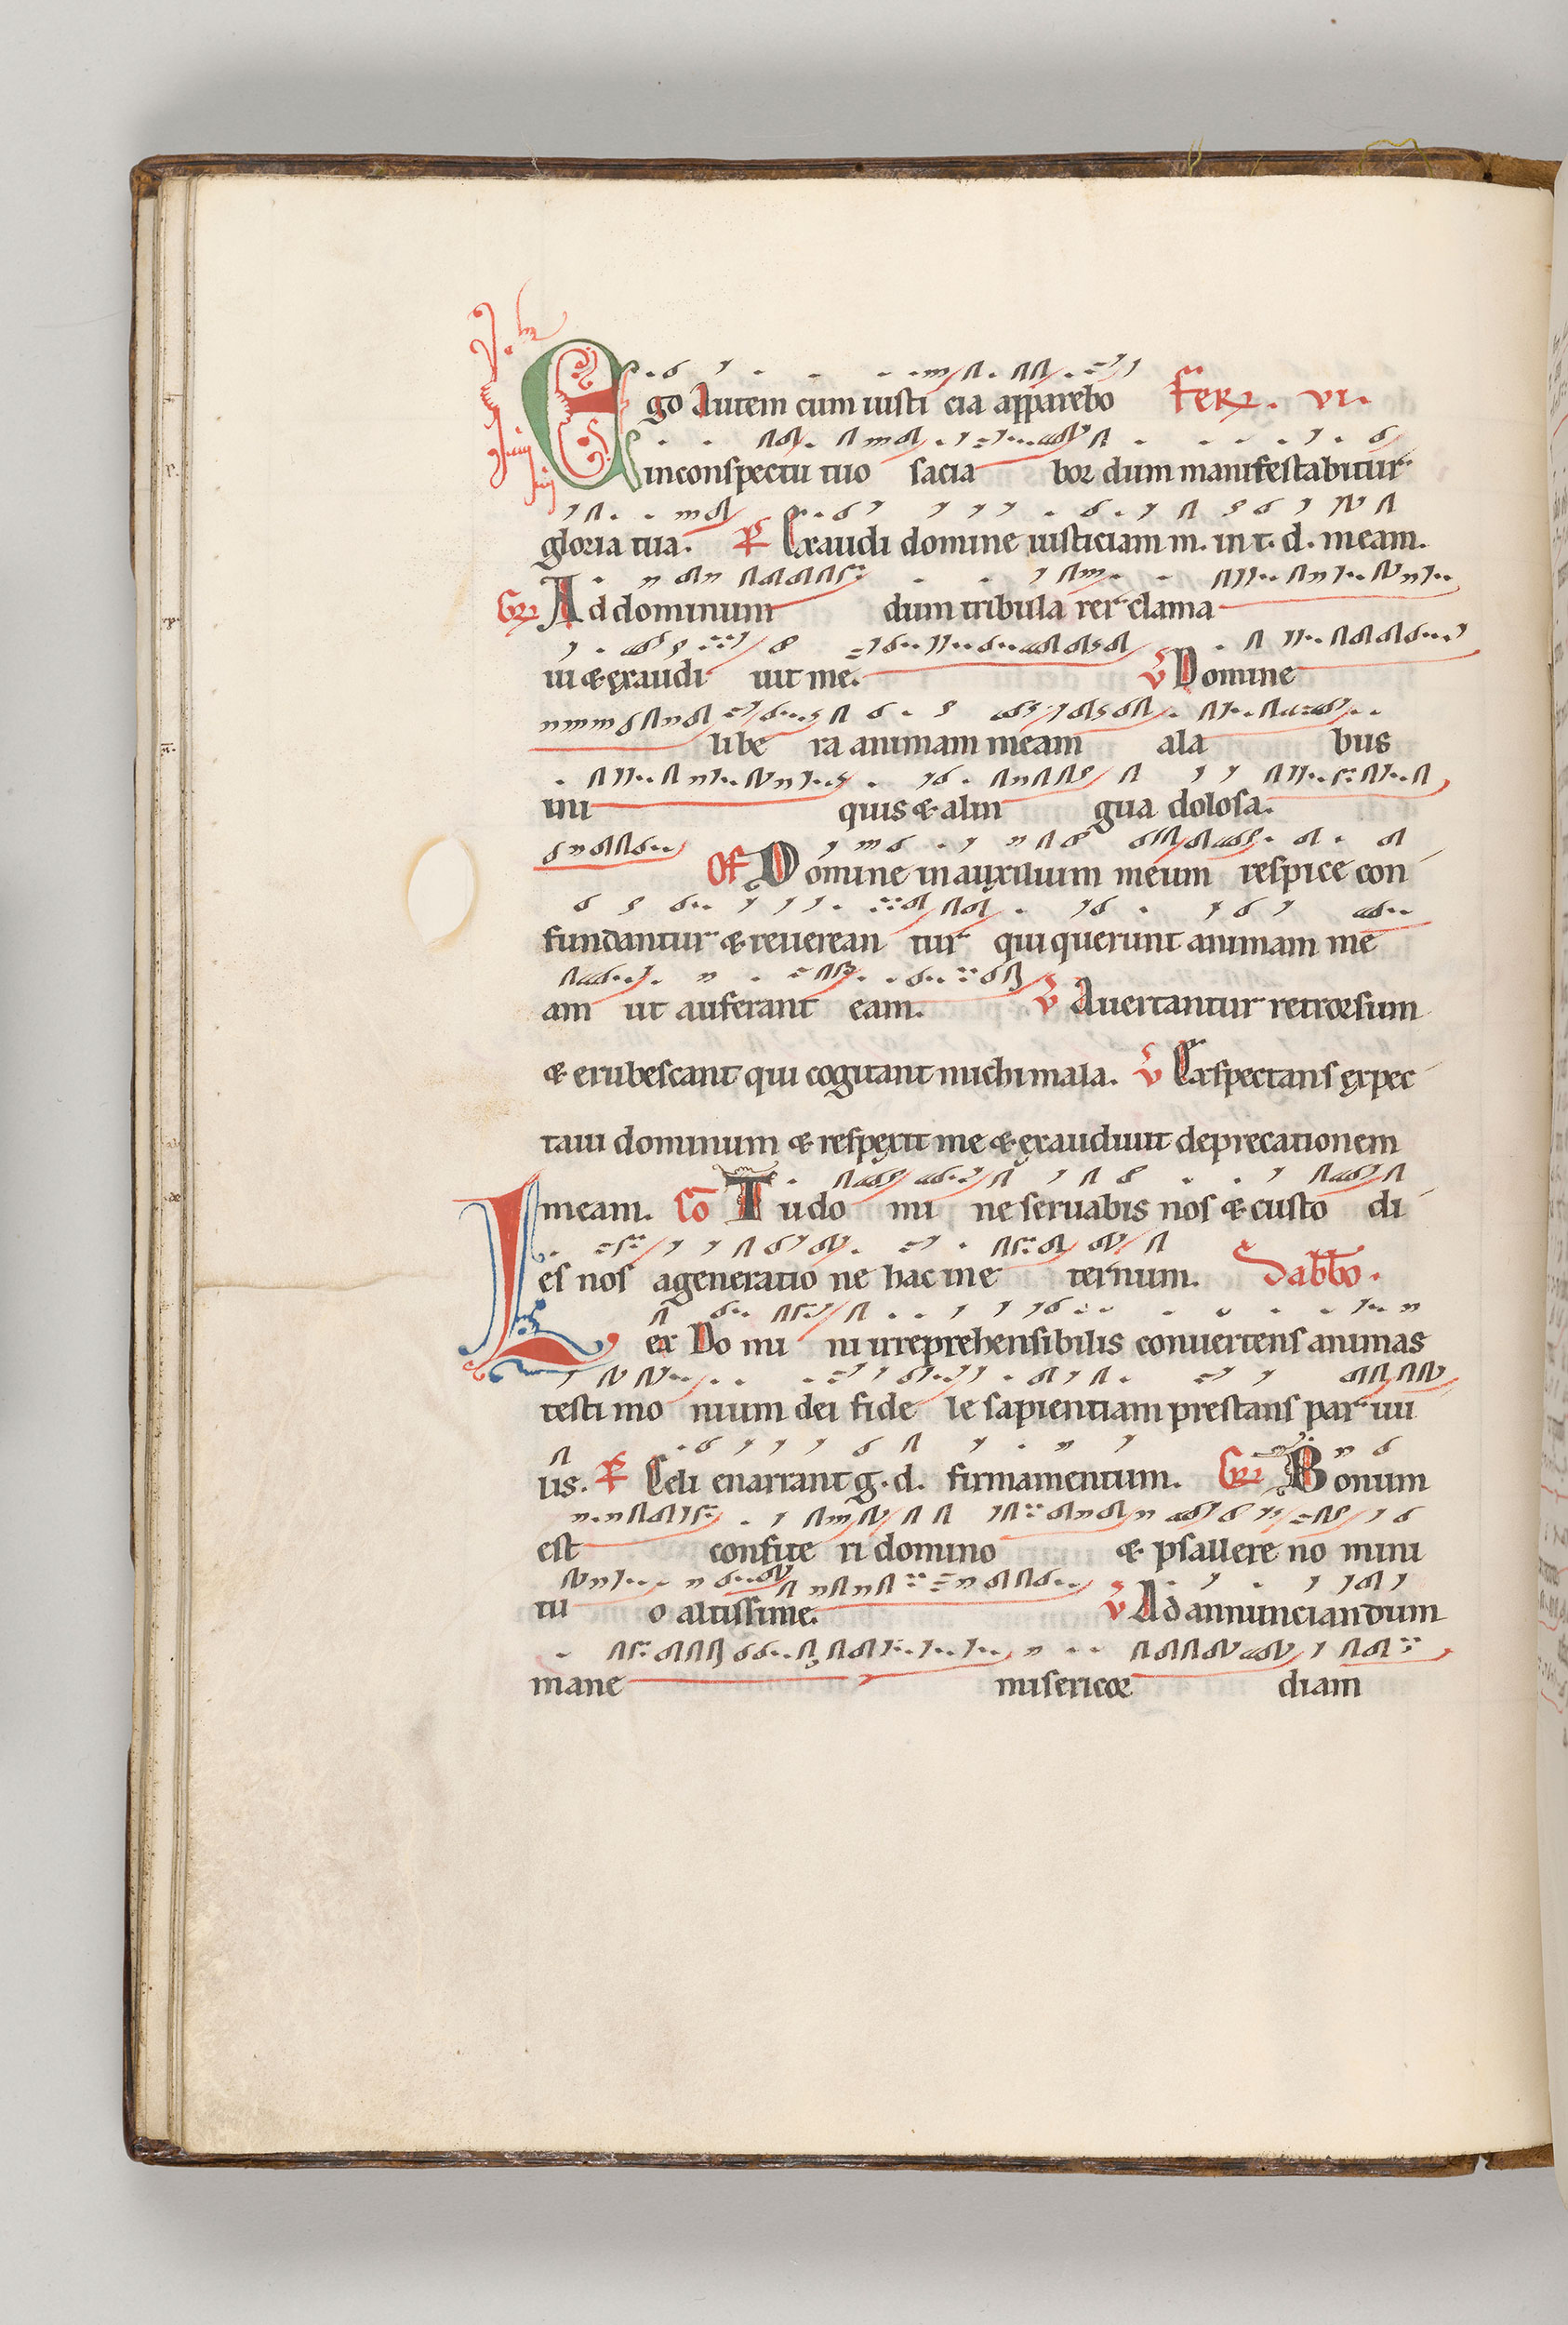 Ego Autem cum iusti cia apparebo Fer. vi.
inconspectu tuo sacia bor dum manifestabitur
gloria tua. Ps Exaudi domine iusticiam m. in t. d. meam.
Gr Ad dominum dum tribula rer clama
ui & exaudi uit me. V Domine
libe ra animam meam ala bus
ini quis & alin gua dolosa.
Of Domine in auxilium meum respice con
fundantur & reuerean tur qui querunt animam me
am ut auferant eam. V Auertantur retrorsum
& erubescant qui cogitant michi mala. V Exspectans expec
taui dominum & respexit me & exaudiuit deprecationem
meam. Co Tu do mi ne seruabis nos & custo di
es nos a generatio ne hac in e ternum. Sabbo.
Lex Do mi ni irreprehensibilis conuertens animas
testi mo nium dei fide le sapientiam prestans par uu
lis. Ps Celi enarrant g. d. firmamentum. Gr Bonum
est confite ri domino & psallere no mini
tu o altissime. V Ad annunciandum
mane misericor diam